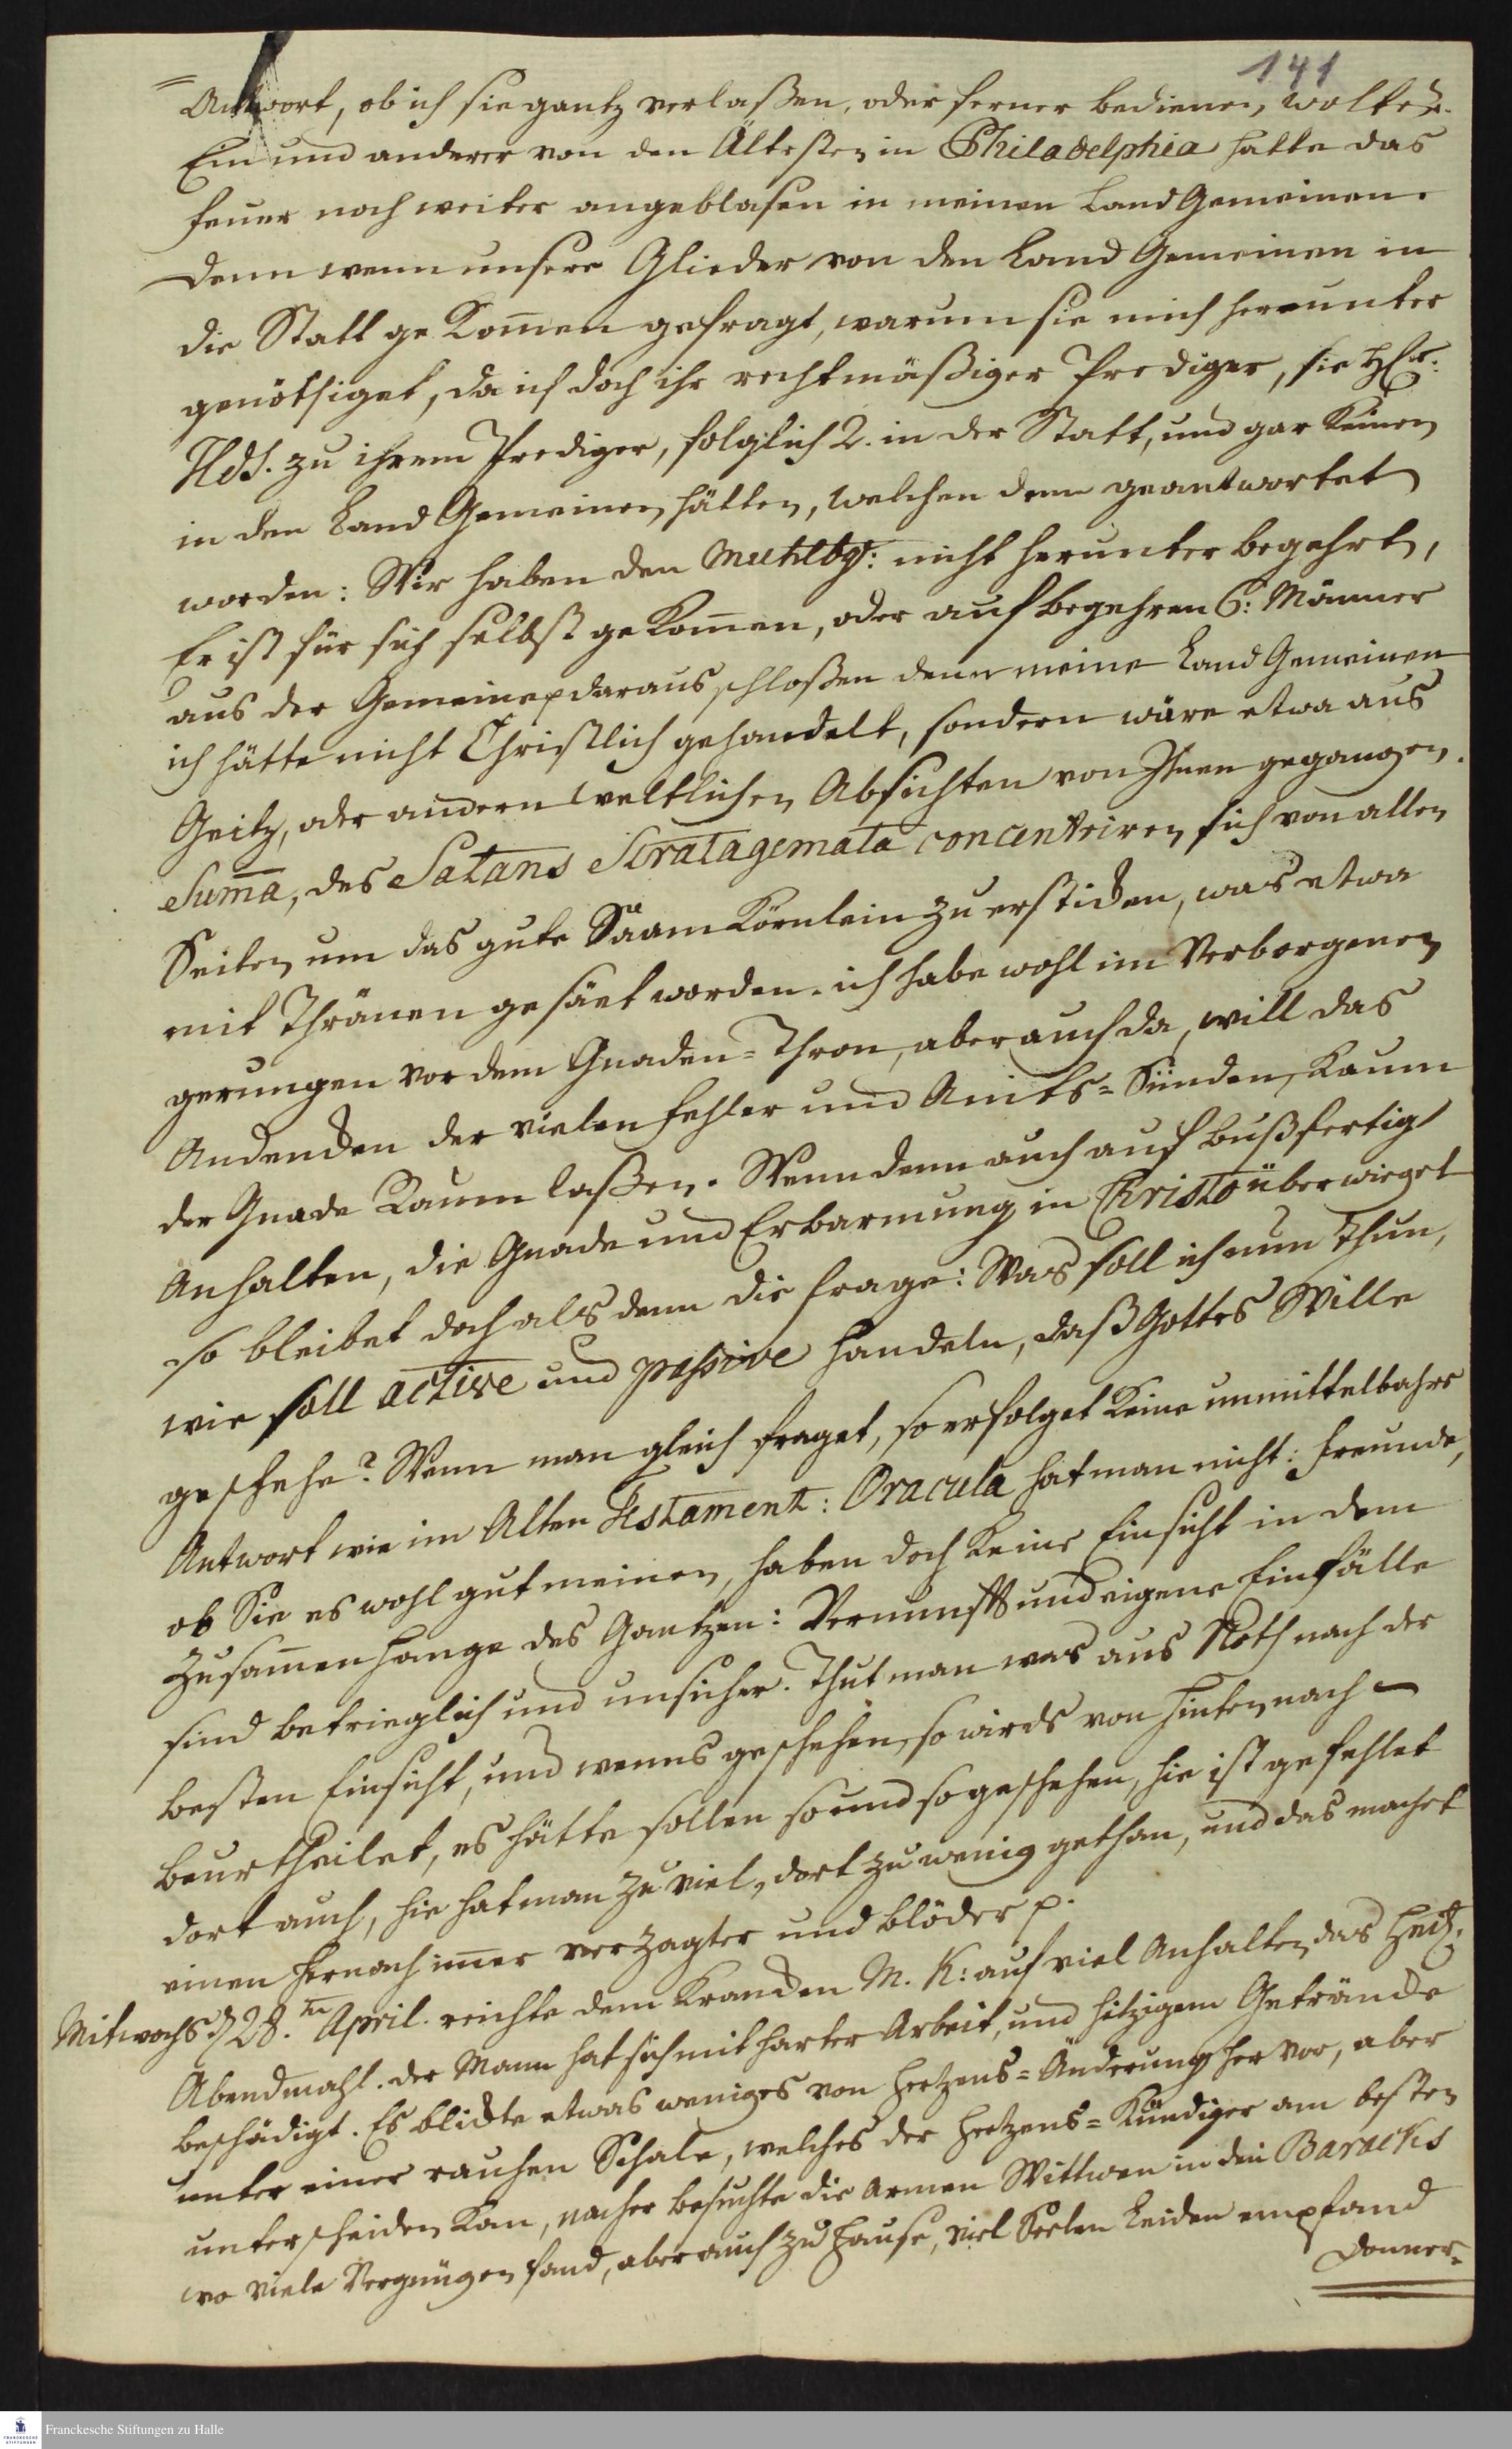 141
=Antwort, ob ich sie gantz verlaßen, oder ferner bedienen wolte p.
Ein und anderer von den Ältesten in Philadelphia hatte das
feuer noch weiter angeblasen in meinen Land Gemeinen.
denn wenn unsere Glieder von den Land Gemeinen in
die Statt gekom̅en gefragt, warum sie mich herunter
genöthiget, da ich doch ihr rechtmäßiger Prediger, sie H E:
Hds. zu ihrem Prediger, folglich 2. in der Statt, und gar Keinen
in den Land Gemeinen hätten, welchen denn geantwortet
worden: Wir haben den Muhlbg: nicht herunter begehrt,
Er ist für sich selbst gekom̅en, oder auf begehren 6: Männer
aus der Gemeine p daraus schloßen denn meine Land Gemeinen
ich hätte nicht Christlich gehandelt, sondern wäre etwa aus
Geitz, oder andern weltlichen Absichten von Ihnen gegangen.
Sum̅a, des Satans Stratagemata concentriren sich von allen
Seiten um das gute Säam Körnlein zu ersticken, was etwa
mit Thränen gesäet worden. ich habe wohl im Verborgenen
gerungen vor dem Gnaden=Thron, aber auch da, will das
Andencken der vielen fehler und Amts=Sünden, Kaum
der Gnade Raum laßen. Wenn denn auch auf bußfertig
Anhalten, die Gnade und Erbarmung in Christo überwieget
so bleibet doch als denn die frage: Was soll ich nun thun,
wie soll active und passive handeln, daß Gottes Wille
geschehe? Wenn man gleich fraget, so erfolget Keine unmittelbahre
Antwort wie im Alten Testament: Oracula hat man nicht: freunde,
ob Sie es wohl gut meinen, haben doch Keine Einsicht in dem
Zusam̅enhange des Gantzen: Vernunfft und eigene Einfälle
sind betrieglich und unsicher. Thut man was aus Noth nach der
besten Einsicht, und wenns geschehen, so wirds von hinten nach
beurtheilet, es hätte sollen so und so geschehen, hie ist gefehlet
dort auch, hie hat man zu viel, dort zu wenig gethan, und das machet
einen hernach im̅er verzagter und blöder p.
Mitwochs d 28.ten April. reichte dem Krancken M. K: auf viel Anhalten das Heil:
Abendmahl. der Mann hat sich mit harter Arbeit, und hitzigem Geträncke
beschädigt. Es blickte etwas weniges von Hertzens=Änderung hervor, aber
unter einer rauhen Schale, welches der Hertzens=Kündiger am besten
unterscheiden Kan, nacher besuchte die Armen Wittwen in den Baracks
wo viele Vergnügen fand, aber auch zu Hause, viel Seelen Leiden empfand
Donner=
Franckesche Stiftungen zu Halle